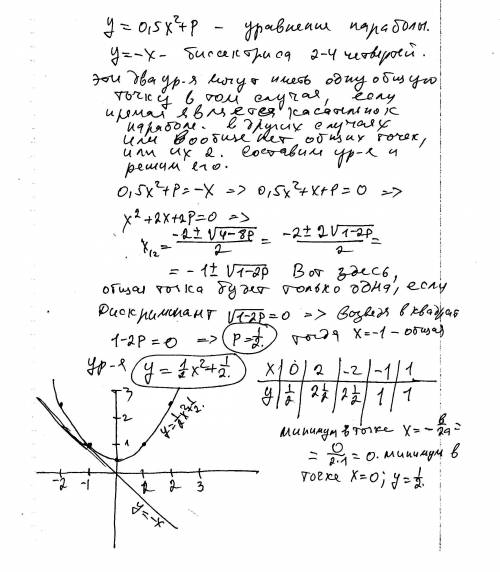 y = 0,5x² + p – уравнение параболы.
y = -x - биссектриса 2-4 четвертей.
эти два ур-я могут иметь одну общую
точку в том случае, если
прямая является касательной к
параболе. в других случаях
или вообще нет общих точек,
или их 2. Составим ур-е и
решим его.
0,5x² + p = -x => 0,5x² + x + p = 0 =>
x² + 2x + 2p = 0 =>
x₁₂ = (-2 ± √(4-8p))/2 = (-2 ± 2√(1-2p))/2 =
= -1 ± √(1-2p) Вот здесь,
общая точка будет только одна, если
Дискриминант √(1-2p) = 0 => Возведя в квадрат
1-2p = 0 => p = 1/2. тогда x = -1 – общая
ур-я y = 1/2 x² + 1/2.
x | 0 | 2 | -2 | -1 | 1
y | 1/2 | 2 1/2 | 2 1/2 | 1 | 1
минимум в точке x = -в/2a =
= 0/2·1 = 0. минимум в
точке x = 0; y = 1/2.
3
2
1
-2 -1 1 2 3
y = 1/2 x² + 1/2.
y = -x